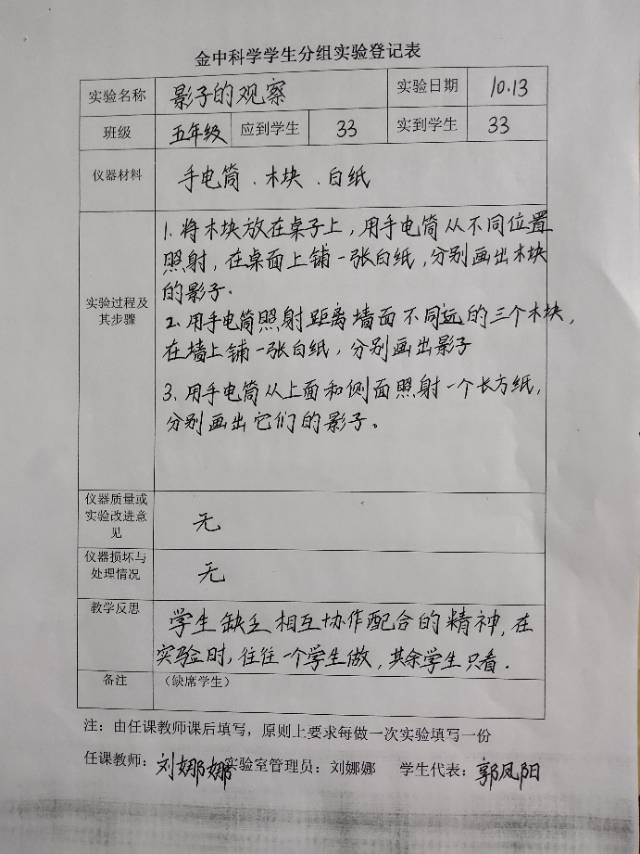 金中科学学生分组实验登记表
实验名称 影子的观察 实验日期 10.13
班级 五年级 应到学生 33 实到学生 33
仪器材料 手电筒、木块、白纸
实验过程及其步骤
1. 将木块放在桌子上,用手电筒从不同位置
照射,在桌面上铺一张白纸,分别画出木块
的影子.
2. 用手电筒照射距离墙面不同远的三个木块,
在墙上铺一张白纸,分别画出影子
3. 用手电筒从上面和侧面照射一个长方纸,
分别画出它们的影子。
仪器质量或
实验改进意
见 无
仪器损坏与
处理情况 无
教学反思 学生缺乏相互协作配合的精神,在
实验时,往往一个学生做,其余学生只看.
备注 (缺席学生)
注:由任课教师课后填写,原则上要求每做一次实验填写一份
任课教师:刘娜娜 实验室管理员:刘娜娜 学生代表:郭凤阳